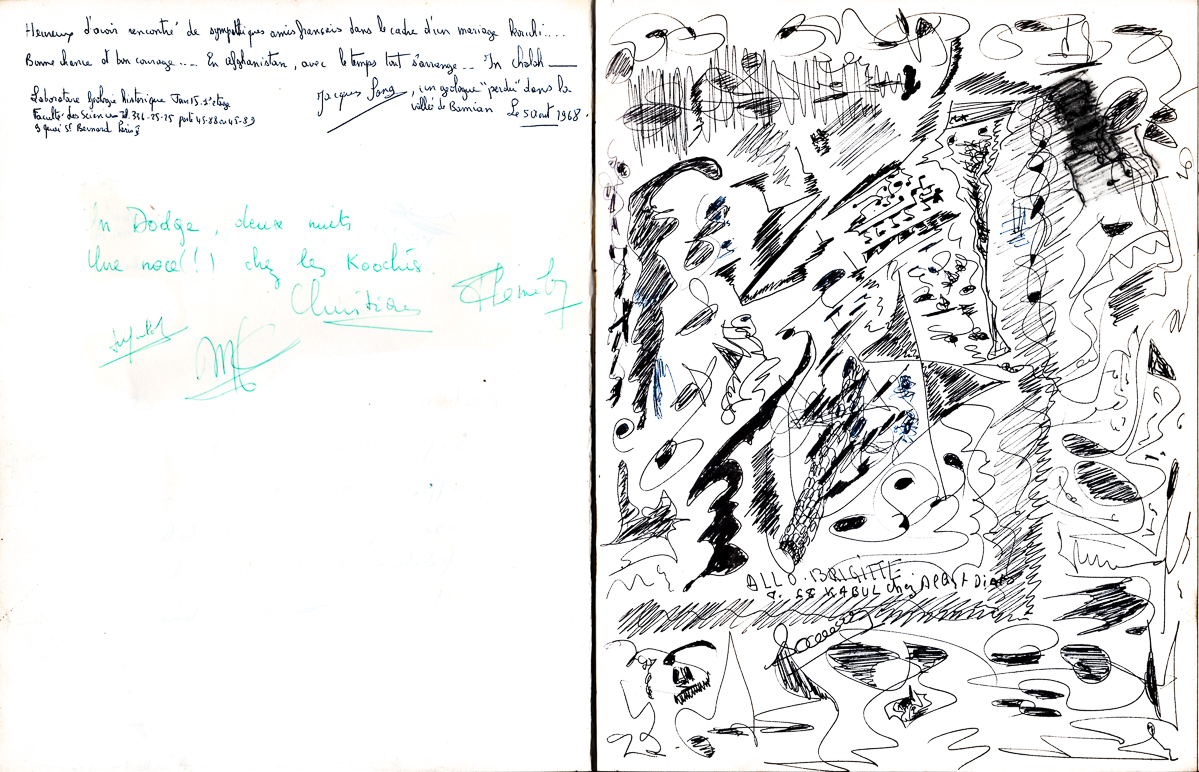 Heureux d'avoir rencontré de sympathiques amis français dans le cadre d'un mariage Koochi....
Bonne chance et bon courage..... En afghanistan, avec le temps tout s'arrange... In Challah
Jacques Lang, un géologue "perdu" dans la
vallée de Bamian Le 5 Aout 1968.
Laboratoire Géologie historique Tour 15. 1er étage
Faculté des Sciences Tel. 336-25-25 poste 45-88 ou 45-89
9 quai St Bernard Paris 5
En Dodge, deux nuits
Une noce (!) chez les Koochis.
Christian
ALLO. BRIGITTE
68 KABUL chez
23